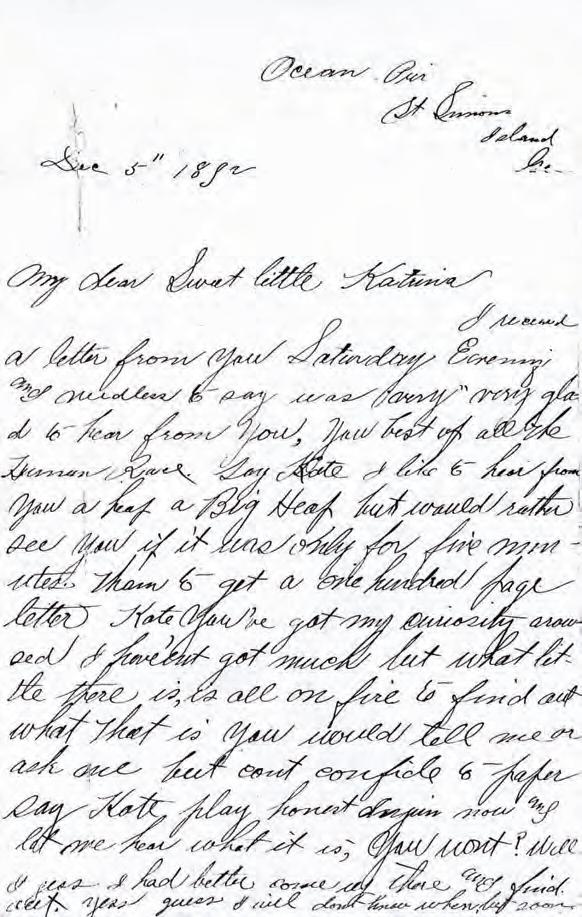 Ocean Pier
St Simons
Island
Ga.
Dec 5" 1892
My dear Sweet little Katrina
I received
a letter from you Saturday Evening
and needless to say was "very" very gla
d to hear from You, You best of all the
Human Race. Say Kate I like to hear from
You a heap a Big Heap but would rather
see you if it was only for five mon-
utes. Than to get a one hundred page
letter Kate You've got my curiosity arow
sed I have'ent got much but what lit-
tle there is, is all on fire to find out
what that is You would tell me or
ask me but cont confide to paper
say Kate play honest Injin now and
let me hear what it is, You wont? Will
I guss I had better come up there and find
out. yess guess I will dont know when but soon